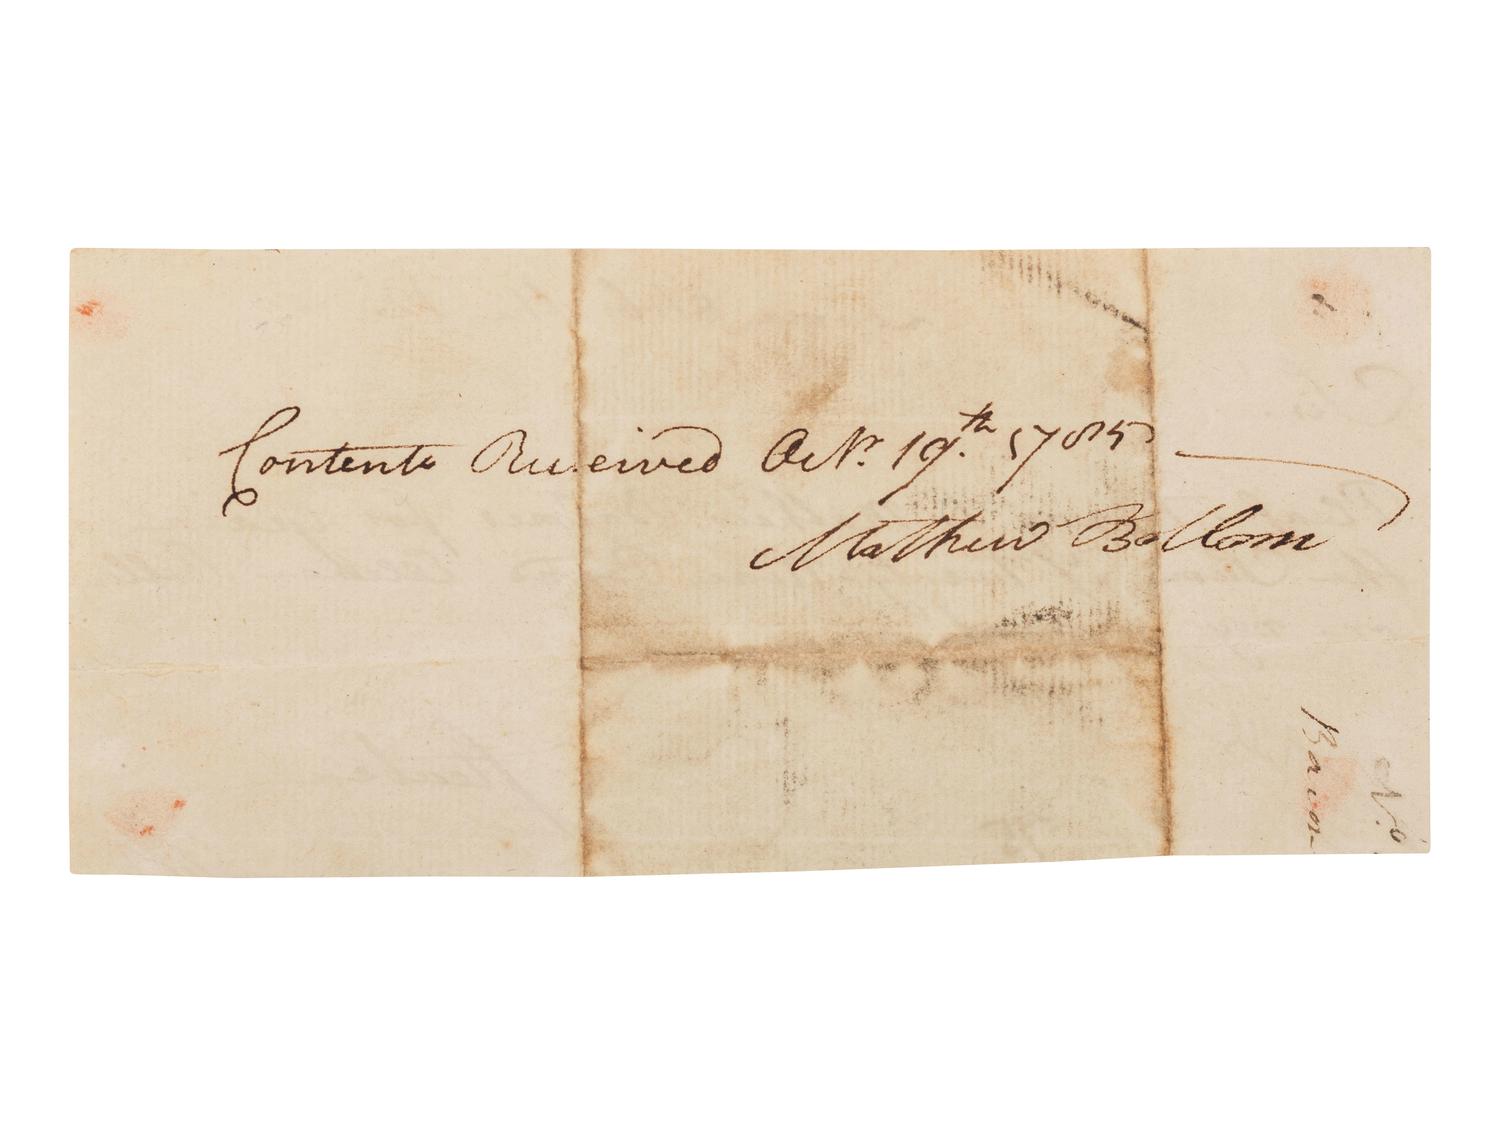 Contents Received Octr. 19th. 1785
Mathew Bottom